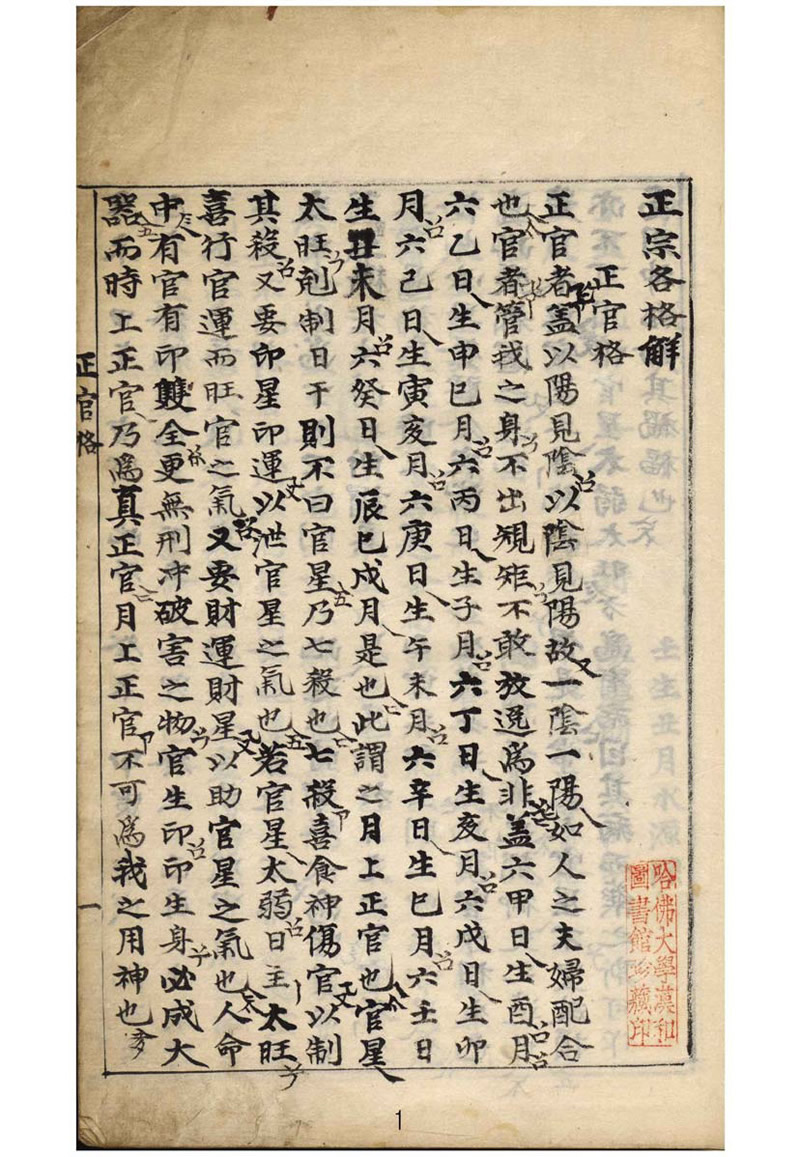 正宗各格解
正官格
正官者盖以陽見陰以陰見陽故一陰一陽如人之夫婦配合
也官者管我之身不出規矩不敢放逸爲非盖六甲日生酉月
六乙日生申巳月六丙日生子月六丁日生亥月六戊日生卯
月六己日生寅亥月六庚日生午未月六辛日生巳月六壬日
生丑未月六癸日生辰巳戍月是也此謂之月上正官也官星
太旺剋制日干則不曰官星乃七殺也七殺喜食神傷官以制
其殺又要印星印運以泄官星之氣也若官星太弱日主太旺
喜行官運而旺官之氣又要財運財星以助官星之氣也人命
中有官有印雙全更無刑冲破害之物官生印印生身必成大
器而時上正官乃爲真正官月上正官不可爲我之用神也
正官格 一
哈佛大學漢和
圖書館珍藏印
1